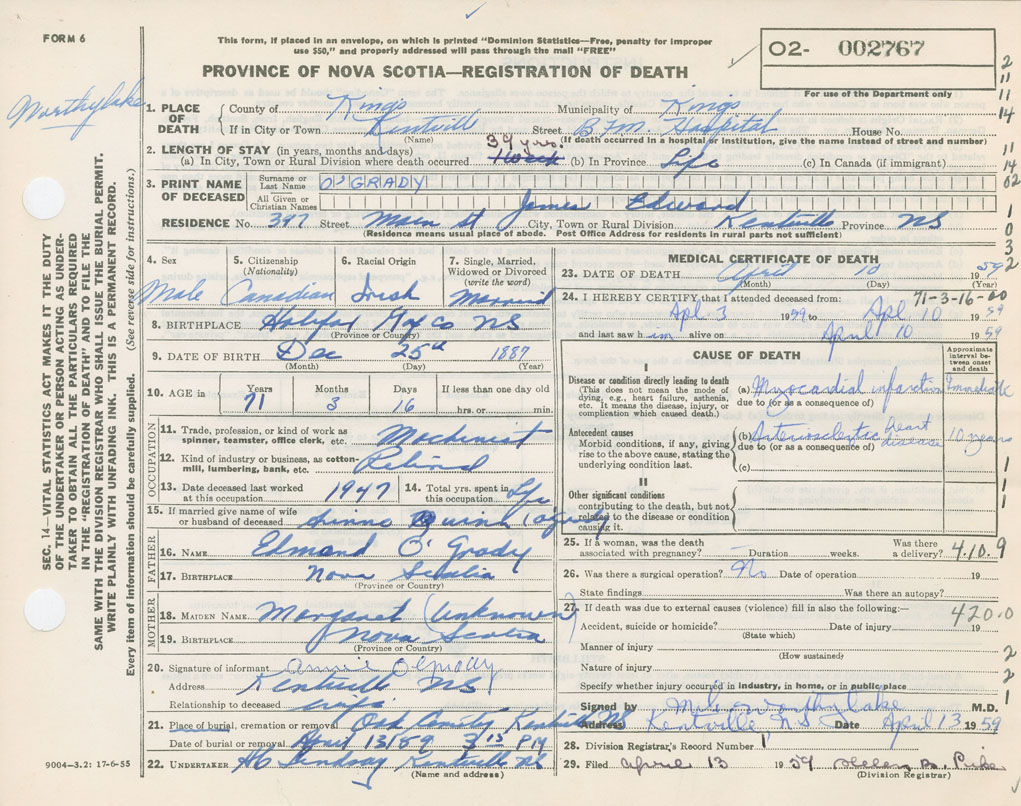 FORM 6
This form, if placed in an envelope, on which is printed "Dominion Statistics—Free, penalty for improper
use $50," and properly addressed will pass through the mail "FREE"
PROVINCE OF NOVA SCOTIA—REGISTRATION OF DEATH
02- 002767
For use of the Department only
2
11
11
14
11
14
02
1
0
3
2
1. PLACE OF DEATH
County of Kings Municipality of Kings
If in City or Town Kentville Street B.F.M. Hospital House No.
(Name) (If death occurred in a hospital or institution, give the name instead of street and number)
2. LENGTH OF STAY (in years, months and days)
39 yrs.
(a) In City, Town or Rural Division where death occurred 1 week (b) In Province Life (c) In Canada (if immigrant)
3. PRINT NAME OF DECEASED
Surname or Last Name O'GRADY
All Given or Christian Names James Edward
RESIDENCE No. 397 Street Main St City, Town or Rural Division Kentville Province NS
(Residence means usual place of abode. Post Office Address for residents in rural parts not sufficient)
4. Sex
Male
5. Citizenship
(Nationality)
Canadian
6. Racial Origin
Irish
7. Single, Married, Widowed or Divorced
(write the word)
Married
8. BIRTHPLACE Halifax Co NS
(Province or Country)
9. DATE OF BIRTH Dec 25th 1887
(Month) (Day) (Year)
10. AGE in
Years 71
Months 3
Days 16
If less than one day old
hrs. or min.
OCCUPATION
11. Trade, profession, or kind of work as spinner, teamster, office clerk, etc. Machinist
12. Kind of industry or business, as cotton-mill, lumbering, bank, etc. Retired
13. Date deceased last worked at this occupation 1947
14. Total yrs. spent in this occupation Life
15. If married give name of wife or husband of deceased Quinn
FATHER
16. NAME Edmond O'Grady
17. BIRTHPLACE Nova Scotia
(Province or Country)
MOTHER
18. MAIDEN NAME Margaret (Unknown)
19. BIRTHPLACE Nova Scotia
(Province or Country)
20. Signature of informant Annie O'Grady
Address Kentville NS
Relationship to deceased wife
21. Place of burial, cremation or removal Oak Kentville NS
Date of burial or removal April 13/59 3 15 PM
22. UNDERTAKER Lindsay Kentville NS
(Name and address)
9004—3.2: 17-6-55
MEDICAL CERTIFICATE OF DEATH
23. DATE OF DEATH April 10 1959
(Month) (Day) (Year)
71-3-16-00
24. I HEREBY CERTIFY that I attended deceased from:
Apl 3 1959 to Apl 10 1959
and last saw him alive on April 10 1959
CAUSE OF DEATH
Approximate interval between onset and death
I
Disease or condition directly leading to death
(This does not mean the mode of dying, e.g., heart failure, asthenia, etc. It means the disease, injury, or complication which caused death.)
(a) Myocardial infarction Immediate
due to (or as a consequence of)
Antecedent causes
Morbid conditions, if any, giving rise to the above cause, stating the underlying condition last.
(b) Arteriosclerotic heart disease 10 years
due to (or as a consequence of)
(c)
II
Other significant conditions
contributing to the death, but not related to the disease or condition causing it.
1
1
1
25. If a woman, was the death associated with pregnancy? — Duration weeks. Was there a delivery?
4.10.9
26. Was there a surgical operation? No Date of operation 19
State findings Was there an autopsy?
27. If death was due to external causes (violence) fill in also the following:—
420.0
Accident, suicide or homicide? Date of injury 19
(State which)
Manner of injury
(How sustained)
Nature of injury
2
2
Specify whether injury occurred in industry, in home, or in public place
1
Signed by M.D.
Address Kentville N.S. Date April 13 1959
28. Division Registrar's Record Number 1
29. Filed April 13 1959 Helen
(Division Registrar)
SEC. 14—VITAL STATISTICS ACT MAKES IT THE DUTY
OF THE UNDERTAKER OR PERSON ACTING AS UNDER-
TAKER TO OBTAIN ALL THE PARTICULARS REQUIRED
IN THE "REGISTRATION OF DEATH" AND TO FILE THE
SAME WITH THE DIVISION REGISTRAR WHO SHALL ISSUE THE BURIAL PERMIT.
WRITE PLAINLY WITH UNFADING INK. THIS IS A PERMANENT RECORD.
Every item of information should be carefully supplied. (See reverse side for instructions.)